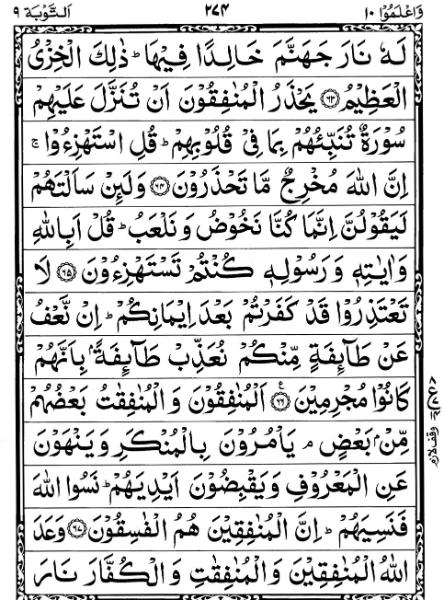 وَاعْلَمُوْٓا ١٠ ٢٧٤ اَلتَّوْبَة ٩
لَهٗ نَارَ جَهَنَّمَ خَالِدًا فِيْهَا ؕ ذٰلِكَ الْخِزْيُ
الْعَظِيْمُ ﴿٦٣﴾ يَحْذَرُ الْمُنٰفِقُوْنَ اَنْ تُنَزَّلَ عَلَيْهِمْ
سُوْرَةٌ تُنَبِّئُهُمْ بِمَا فِيْ قُلُوْبِهِمْ ؕ قُلِ اسْتَهْزِءُوْا ۚ
اِنَّ اللّٰهَ مُخْرِجٌ مَّا تَحْذَرُوْنَ ﴿٦٤﴾ وَلَئِنْ سَاَلْتَهُمْ
لَيَقُوْلُنَّ اِنَّمَا كُنَّا نَخُوْضُ وَ نَلْعَبُ ؕ قُلْ اَبِاللّٰهِ
وَاٰيٰتِهٖ وَ رَسُوْلِهٖ كُنْتُمْ تَسْتَهْزِءُوْنَ ﴿٦٥﴾ لَا
تَعْتَذِرُوْا قَدْ كَفَرْتُمْ بَعْدَ اِيْمَانِكُمْ ؕ اِنْ نَّعْفُ
عَنْ طَآئِفَةٍ مِّنْكُمْ نُعَذِّبْ طَآئِفَةًۢ بِاَنَّهُمْ
كَانُوْا مُجْرِمِيْنَ ﴿٦٦﴾ اَلْمُنٰفِقُوْنَ وَ الْمُنٰفِقٰتُ بَعْضُهُمْ
مِّنْۢ بَعْضٍ ۘ يَاْمُرُوْنَ بِالْمُنْكَرِ وَ يَنْهَوْنَ
عَنِ الْمَعْرُوْفِ وَ يَقْبِضُوْنَ اَيْدِيَهُمْ ؕ نَسُوا اللّٰهَ
فَنَسِيَهُمْ ؕ اِنَّ الْمُنٰفِقِيْنَ هُمُ الْفٰسِقُوْنَ ﴿٦٧﴾ وَعَدَ
اللّٰهُ الْمُنٰفِقِيْنَ وَ الْمُنٰفِقٰتِ وَ الْكُفَّارَ نَارَ
وقف لازم